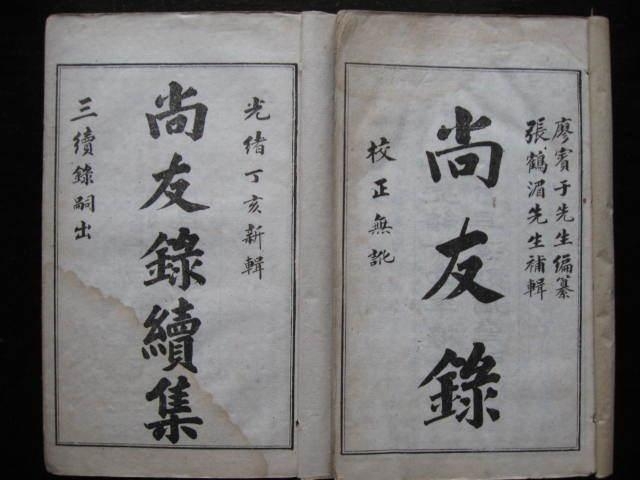 廖賓于先生編纂
張鶴湄先生補輯
尚友錄
校正無訛
光緒丁亥新輯
尚友錄續集
三續錄嗣出